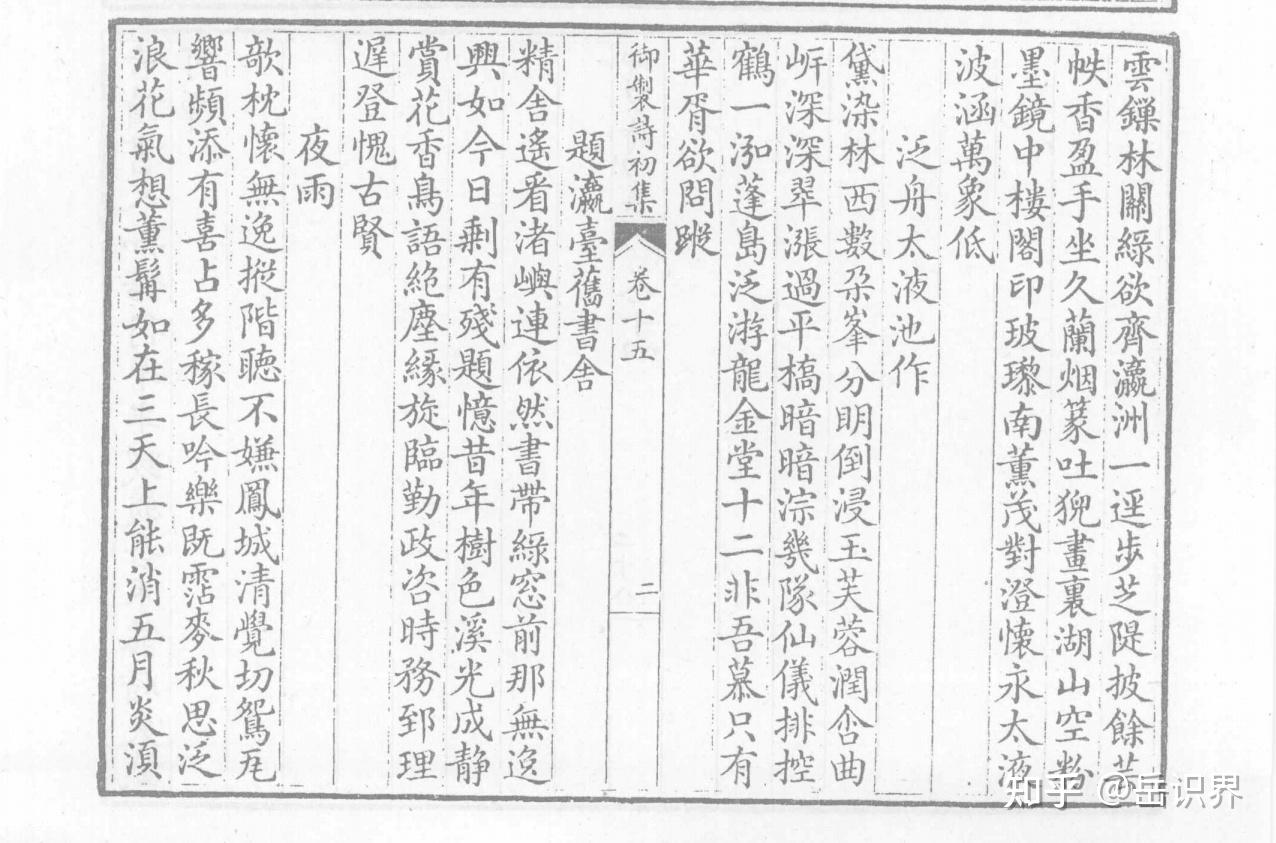 雲鏁林關綠欲齊瀛洲一逕步芝隄披餘芸
帙香盈手坐久蘭烟篆吐猊畫裏湖山空粉
墨鏡中樓閣印玻瓈南薰茂對澄懷永太液
波涵萬象低
泛舟太液池作
黛染林西數朶峯分明倒浸玉芙蓉潤含曲
岸深深翠漲過平橋暗暗淙幾隊仙儀排控
鶴一泓蓬島泛游龍金堂十二非吾慕只有
華胥欲問蹤
御製詩初集 卷十五 二
題瀛臺舊書舍
精舍遙看渚嶼連依然書帶綠窓前那無逸
興如今日剰有殘題憶昔年樹色溪光成靜
賞花香鳥語絶塵緣旋臨勤政咨時務郅理
遲登愧古賢
夜雨
欹枕懷無逸摐階聽不嫌鳳城清覺切鴛瓦
響頻添有喜占多稼長吟樂既霑麥秋思泛
浪花氣想薰髯如在三天上能消五月炎湏
知乎 @岳识界